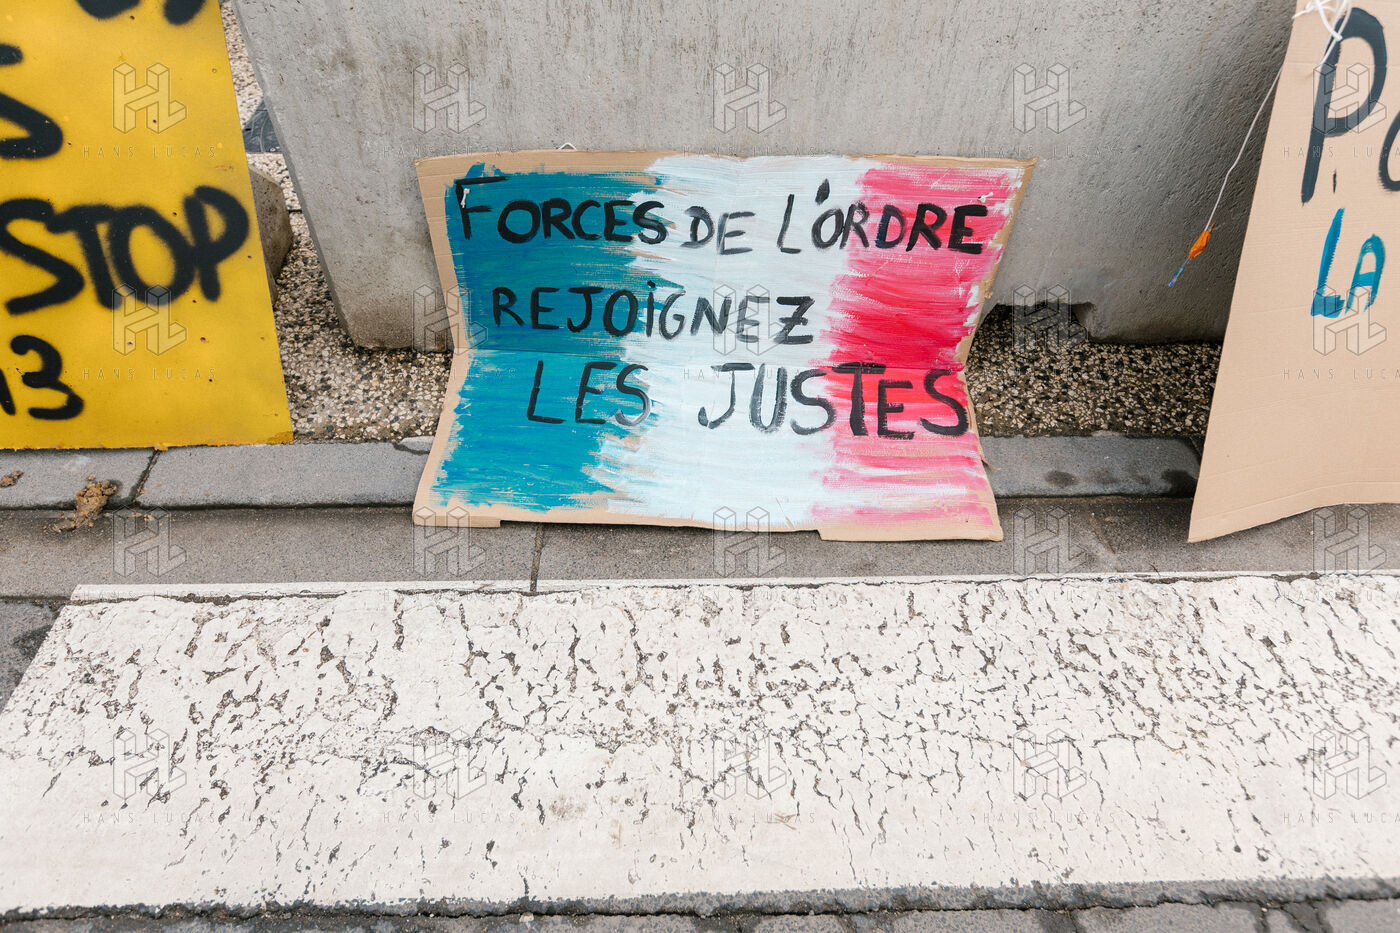 STOP
13
FORCES DE L'ORDRE
REJOIGNEZ
LES JUSTES
LA
HANS LUCAS